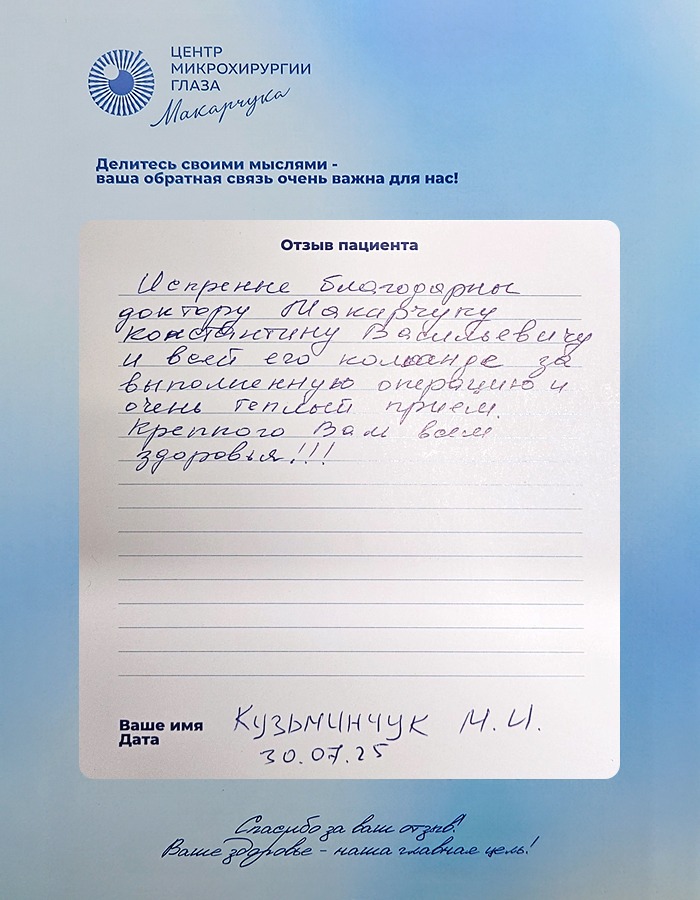 ЦЕНТР
МИКРОХИРУРГИИ
ГЛАЗА
Макарчука
Делитесь своими мыслями -
ваша обратная связь очень важна для нас!
Отзыв пациента
Искренне благодарны
доктору Макарчуку
Константину Васильевичу
и всей его команде за
выполненную операцию и
очень теплый прием.
Крепкого Вам всем
здоровья!!!
Ваше имя
Кузьминчук М. И.
Дата
30.07.25
Спасибо за ваш отзыв!
Ваше здоровье - наша главная цель!